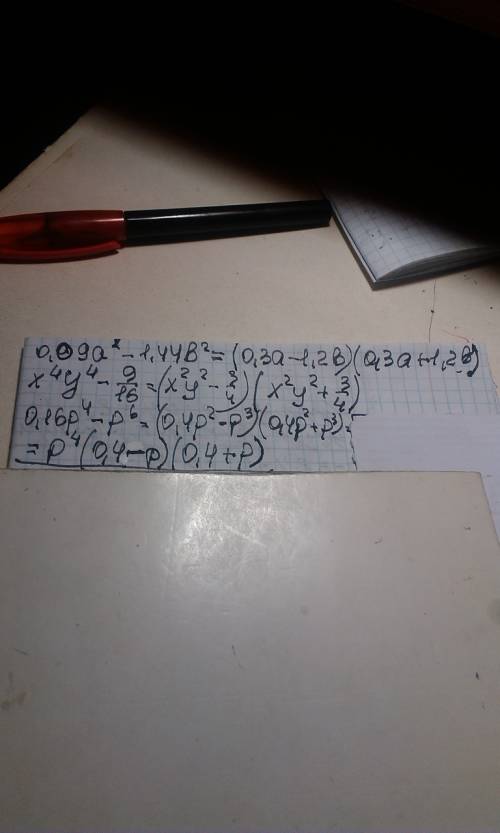 0,09a² - 1,44b² = (0,3a - 1,2b)(0,3a + 1,2b)
x⁴y⁴ - 9/16 = (x²y² - 3/4)(x²y² + 3/4)
0,16p⁴ - p⁶ = (0,4p² - p³)(0,4p² + p³) =
= p⁴(0,4 - p)(0,4 + p)